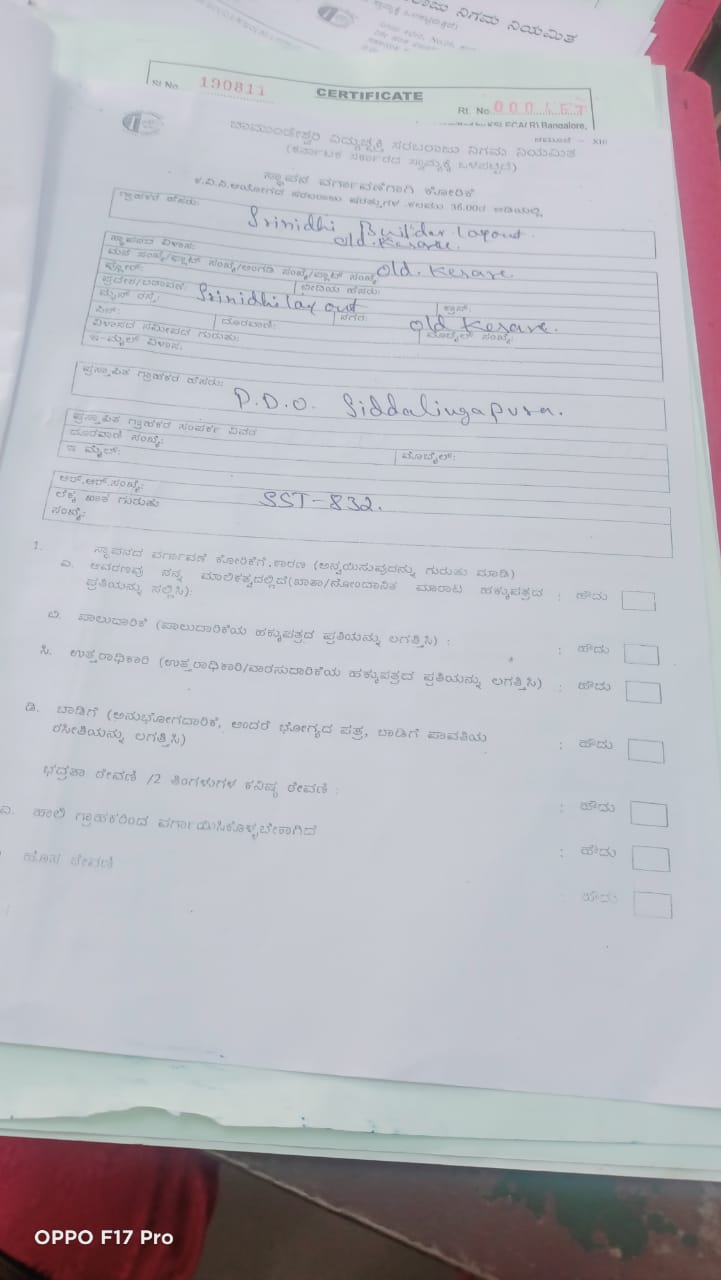 ನಿಗಮ ನಿಯಮಿತ
Sl No. 190811
CERTIFICATE
Rt. No.
Bangalore,
ನಮೂನೆ - XIII
ಚಾಮುಂಡೇಶ್ವರಿ ವಿದ್ಯುಚ್ಛಕ್ತಿ ಸರಬರಾಜು ನಿಗಮ ನಿಯಮಿತ
(ಕರ್ನಾಟಕ ಸರ್ಕಾರದ ಸ್ವಾಮ್ಯಕ್ಕೆ ಒಳಪಟ್ಟಿದೆ)
ಸ್ಥಾಪನದ ವರ್ಗಾವಣೆಗಾಗಿ ಕೋರಿಕೆ
ಕ.ವಿ.ನಿ.ಆಯೋಗದ ಸರಬರಾಜು ಷರತ್ತುಗಳ ಕಲಮು 36.00ರ ಅಡಿಯಲ್ಲಿ
ಗ್ರಾಹಕರ ಹೆಸರು: Srinidhi Builder layout
old. Kesare.
ಸ್ಥಾಪನದ ವಿಳಾಸ:
ಮನೆ ಸಂಖ್ಯೆ/ಫ್ಲಾಟ್ ಸಂಖ್ಯೆ/ಅಂಗಡಿ ಸಂಖ್ಯೆ/ಪ್ಲಾಟ್ ಸಂಖ್ಯೆ old. Kesare.
ಫ್ಲೋರ್: ಬೀದಿಯ ಹೆಸರು:
ಪ್ರದೇಶ/ಬಡಾವಣೆ: Srinidhi lay out ಕ್ರಾಸ್:
ಮೈನ್ ರಸ್ತೆ: ನಗರ: old Kesare.
ಪಿನ್: ದೂರವಾಣಿ: ಮೊಬೈಲ್ ಸಂಖ್ಯೆ:
ವಿಳಾಸದ ಸಮೀಪದ ಗುರುತು:
ಇ-ಮೈಲ್ ವಿಳಾಸ.
ಪ್ರಸ್ತಾಪಿತ ಗ್ರಾಹಕರ ಹೆಸರು: P.D.O. Siddalingapura.
ಪ್ರಸ್ತಾಪಿತ ಗ್ರಾಹಕರ ಸಂಪರ್ಕ ವಿವರ
ದೂರವಾಣಿ ಸಂಖ್ಯೆ: ಮೊಬೈಲ್:
ಇ ಮೈಲ್:
ಆರ್.ಆರ್.ಸಂಖ್ಯೆ: SST-832.
ಲೆಕ್ಕ ಖಾತೆ ಗುರುತು
ಸಂಖ್ಯೆ:
1. ಸ್ಥಾಪನದ ವರ್ಗಾವಣೆ ಕೋರಿಕೆಗೆ ಕಾರಣ (ಅನ್ವಯಿಸುವುದನ್ನು ಗುರುತು ಮಾಡಿ)
ಎ. ಆವರಣವು ನನ್ನ ಮಾಲಿಕತ್ವದಲ್ಲಿದೆ(ಖಾತಾ/ನೋಂದಾನಿತ ಮಾರಾಟ ಹಕ್ಕುಪತ್ರದ : ಹೌದು
ಪ್ರತಿಯನ್ನು ಸಲ್ಲಿಸಿ):
ಬಿ. ಪಾಲುದಾರಿಕೆ (ಪಾಲುದಾರಿಕೆಯ ಹಕ್ಕುಪತ್ರದ ಪ್ರತಿಯನ್ನು ಲಗತ್ತಿಸಿ) : : ಹೌದು
ಸಿ. ಉತ್ತರಾಧಿಕಾರಿ (ಉತ್ತರಾಧಿಕಾರಿ/ವಾರಸುದಾರಿಕೆಯ ಹಕ್ಕುಪತ್ರದ ಪ್ರತಿಯನ್ನು ಲಗತ್ತಿಸಿ) : ಹೌದು
ಡಿ. ಬಾಡಿಗೆ (ಅನುಭೋಗದಾರಿಕೆ, ಅಂದರೆ ಭೋಗ್ಯದ ಪತ್ರ, ಬಾಡಿಗೆ ಪಾವತಿಯ : ಹೌದು
ರಸೀತಿಯನ್ನು ಲಗತ್ತಿಸಿ)
ಭದ್ರತಾ ಠೇವಣಿ /2 ತಿಂಗಳುಗಳ ಕನಿಷ್ಠ ಠೇವಣಿ : : ಹೌದು
ಎ. ಹಾಲಿ ಗ್ರಾಹಕರಿಂದ ವರ್ಗಾಯಿಸಿಕೊಳ್ಳಬೇಕಾಗಿದೆ : ಹೌದು
ಹೊಸ ಠೇವಣಿ : ಹೌದು
OPPO F17 Pro